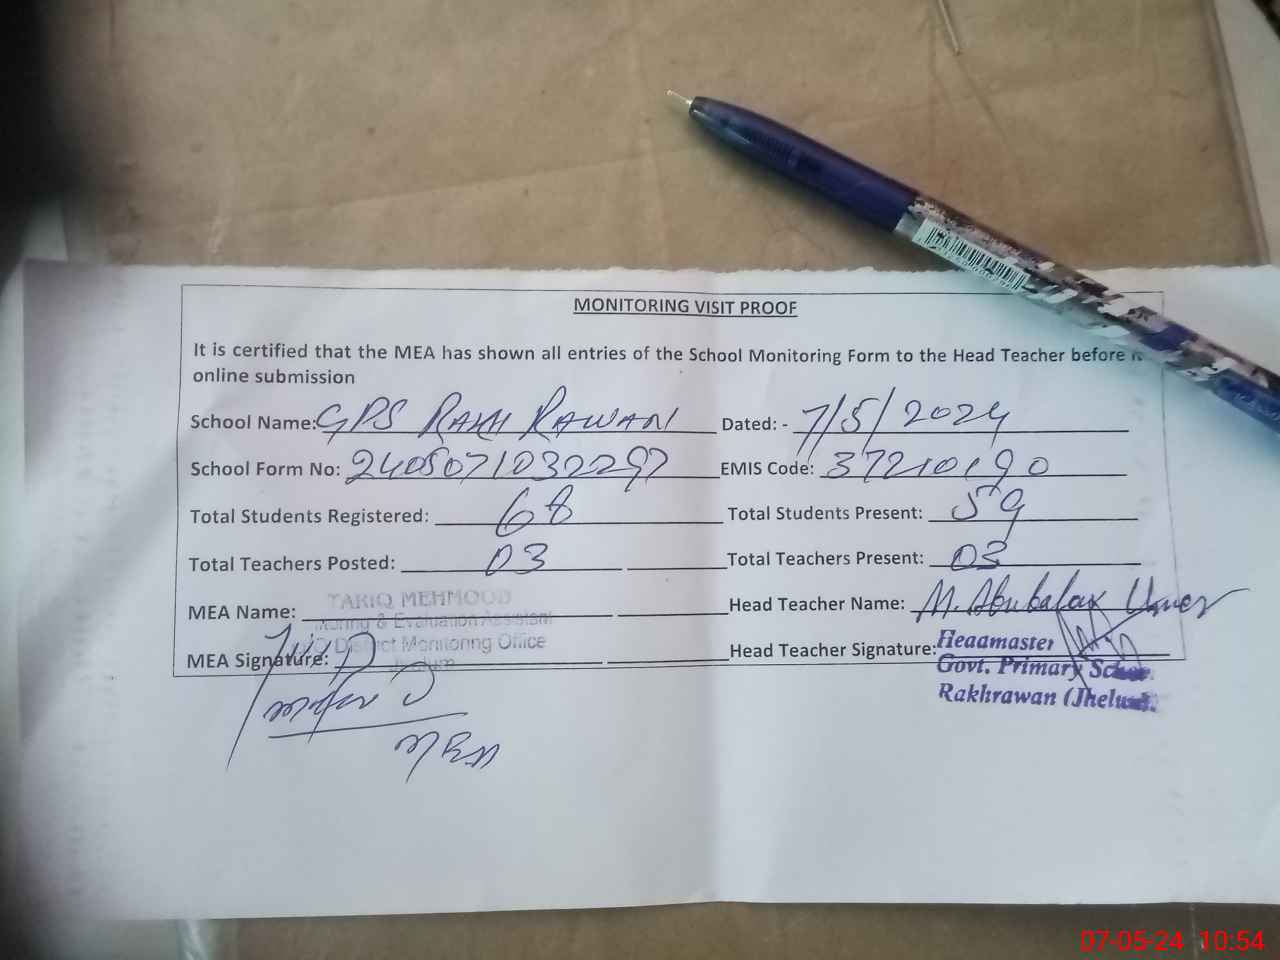 MONITORING VISIT PROOF
It is certified that the MEA has shown all entries of the School Monitoring Form to the Head Teacher before
online submission
School Name: GPS RAKH RAWAN Dated: - 7/5/2024
School Form No: 2405071032297 EMIS Code: 37210190
Total Students Registered: 68 Total Students Present: 59
Total Teachers Posted: 03 Total Teachers Present: 03
MEA Name: TARIQ MEHMOOD Head Teacher Name: M. Abubakar Umer
& Evaluation Assistant
District Monitoring Office
Jhelum
MEA Signature: Head Teacher Signature:
Headmaster
Govt. Primary
Rakhrawan (Jhelum).
MEA
07-05-24 10:54